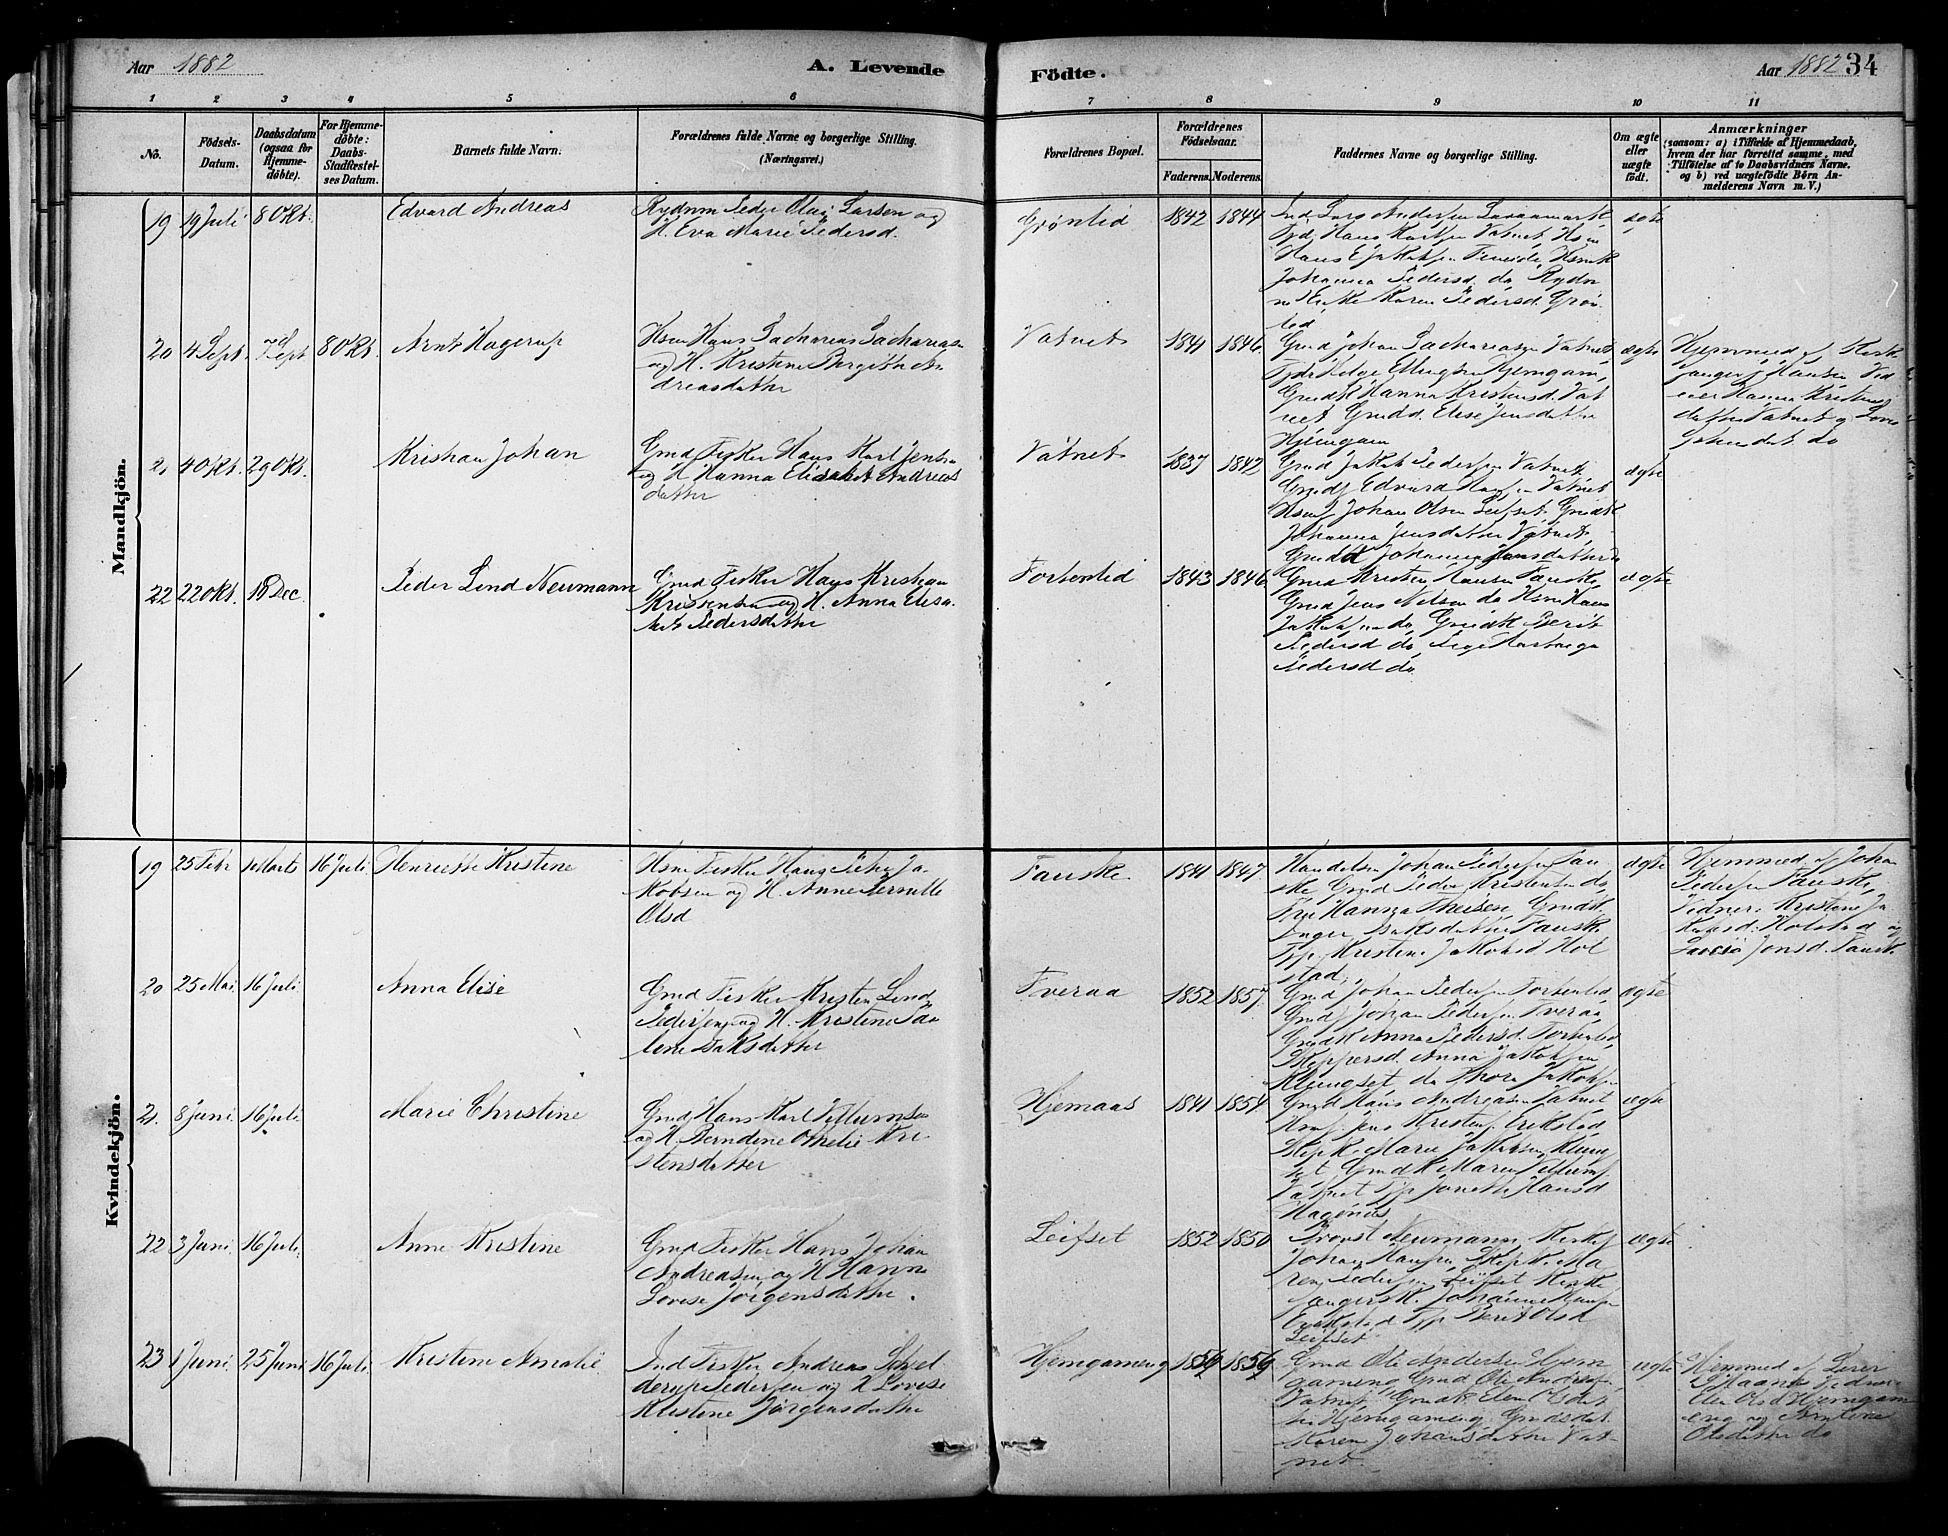 Aar 1882
A. Levende
Födte.
Aar 1882 34
1 2 3 4 5 6 7 8 9 10 11
No.
Födsels-
Datum.
Daabsdatum
(ogsaa for
Hjemme-
döbte).
For Hjemme-
döbte:
Daabs-
Stadfestel-
ses Datum.
Barnets fulde Navn.
Forældrenes fulde Navne og borgerlige Stilling.
(Næringsvei.)
Forældrenes Bopæl.
Forældrenes
Födselsaar.
Faderens. Moderens.
Faddernes Navne og borgerlige Stilling.
Om ægte
eller
uægte
födt.
Anmærkninger
(saasom: a) i Tilfælde af Hjemmedaab,
hvem der har forrettet samme, med
Tilföielse af to Daabsvidners Navne.
og b) ved uægtefödte Börn An-
melderens Navn m. V.)
Mandkjön.
19 19 Juli 8 Okt. Edvard Andreas
Rydnm Peder Olai Larsen og
H. Eva Marie Pedersd.
Grøntlid 1842 1844
Ind Lars Andersen
Hans Karlsen Vatnet, Hsm
Hans
Johanna Pedersd. do Rydn
Enke Karen Pedersd. Grøn
lid
ægte
20 4 Sept. 7 Sept 8 Okt. Arnt Hagerup
Hsm Hans Zacharias Zachariasen
og H. Kristine Birgitte An
dreasdatter
Vatnet 1841 1846
Grmd Johan Zachariasen Vatnet,
Helge Ellingsen Hjemgam,
Grmdk Hanna Kristensd. Vat
net Grmdd. Elise Jensdatter
Hjemgam
ægte
Hjemmed af Kirke
sanger J Hansen Vid
ner Hanna Kristens
datter Vatnet og
Johansdat. do
21 4 Okt. 29 Okt. Kristian Johan
Grmd Fisker Hans Karl Jensen
og H Hanna Elisabet Andreas
datter
Vatnet 1837 1842
Grmd Jakob Pedersen Vatnet
Grmds Edvard Hansen Vatnet
Hsms Johan Olsen Leifset. Grmdk
Johanna Jensdatter Vatnet,
Grmdd Johanna Hansdatter do
ægte
22 22 Okt. 18 Dec. Peder Lind Neumann
Grmd Fisker Hans Kristian
Kristensen og H. Anna Elisa
bet Pedersdatter
Forbenlid 1843 1846
Grmd Kristen Hansen Fauske
Grmd Jens Nelsen do Hsm Hans
Jakobsen do, Grmdk Berit
Pedersd do, Pige
Pedersd do
ægte
Kvindekjön.
19 25 Febr 1 Marts 16 Juli Henriette Kristine
Hsm Fisker Hans Peter Ja
kobsen og H. Anne Pernille
Olsd
Fauske. 1841 1847
Handelsm Johan Pedersen Fau
ske, Grmd Peder Kristensen do,
Fru Hanna Theisen, Grmdk.
Inger Isaksdatter Fauske
Tjp. Kristine Jakobsd. Hol
stad.
ægte
Hjemmed af Johan
Pedersen Fauske,
Vidner: Kristine Ja
kobsd: Holstad og
Jonsd. Fauske
20 25 Mai. 16 Juli. Anna Elise
Grmd Fisker Kristen Lind
Pedersen og H. Kristine Pau
line Isaksdatter
Tveraa 1852 1857
Grmd Johan Pedersen Forbenlid,
Grmds Johan Pedersen Tveraa,
Grmdk Anna Pedersd. Forbenlid,
Skippersd. Anna Jakobsen
Klungset, do Thora Jakobsen
ægte
21. 8 Juni. 16 Juli Marie Christine
Grmd Hans Karl Tellumsen
og H. Berndine Othelie Kri
stensdatter
Hjemaas 1841 1854
Grmd Hans Andreasen Vatnet
Hsms. Jens Kristens. Erikstad
Skipk. Marie Jakobsen Klung
set Grmdk Maren Tellums.
Vatnet Tjp Jonette Hansd
Hagenæs
ægte
22 3 Juni. 16 Juli. Anne Kristine
Grmd Fisker Hans Johan
Andreasen og H Hanna
Lovise Jørgensdatter.
Leifset 1852 1850
Provst Neumann, Kirkes
Johan Hansen, Skipk. Ma
ren Pedersen Leifset Kirke
sangersk. Johanna Hansen
Erikstad Tjp Berit Olsd
Leifset
ægte
23 1 Juni. 25 Juni 16 Juli Kristine Amalie
Ind Fisker Andreas Schjel
derup Pedersen og H Lovise
Kristine Jørgensdatter
Hjemgameng 1859 1859
Grmd Ole Andersen Hjem
gameng, Grmd Ole Andreass.
Vatnet, Grmdk Elen Olsdat
ter Hjemgameng, Grmdsdat.
Karen Johansdatter Vat-
net.
ægte
Hjemmed af Lærer
Elen Olsd Hjemgam
eng og
Olsdatter do